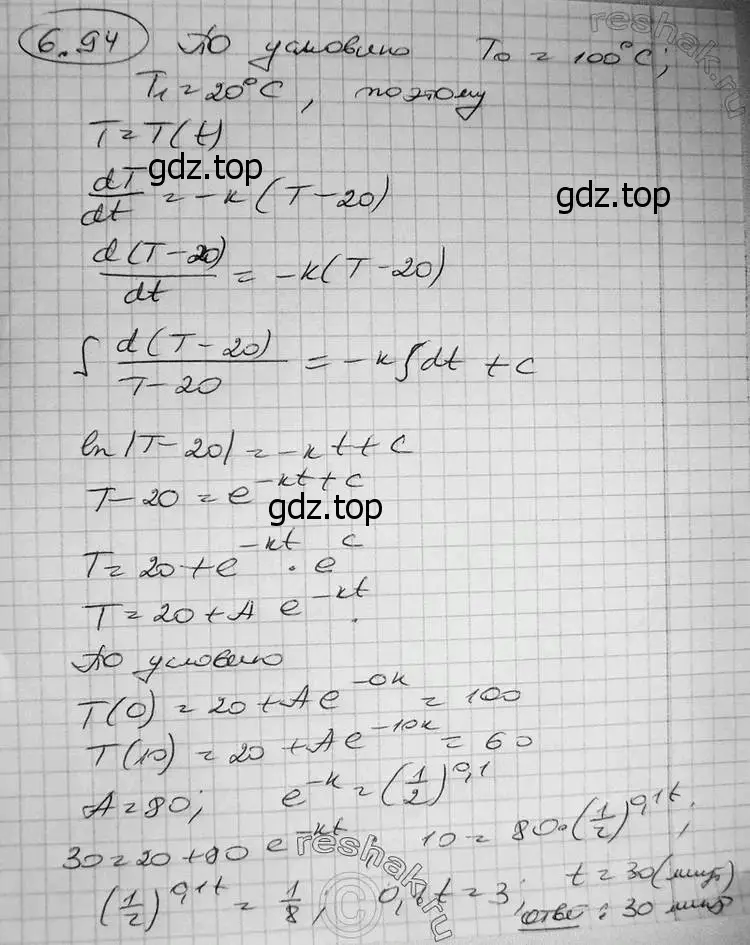 6.94 По условию T₀ = 100°C;
T₁ = 20°C, поэтому
T = T(t)
dT/dt = -k(T-20)
d(T-20)/dt = -k(T-20)
∫ d(T-20)/(T-20) = -k∫dt + C
ln|T-20| = -kt + C
T-20 = e^(-kt+C)
T = 20 + e^(-kt) · e^C
T = 20 + A e^(-kt).
По условию
T(0) = 20 + A e^(-0k) = 100
T(10) = 20 + A e^(-10k) = 60
A = 80; e^(-k) = (1/2)^(0,1)
30 = 20 + 80 e^(-kt). 10 = 80·(1/2)^(0,1t);
(1/2)^(0,1t) = 1/8; 0,1t = 3; t = 30 (минут)
ответ: 30 минут
gdz.top
gdz.top
gdz.top
reshak.ru
reshak.ru
©